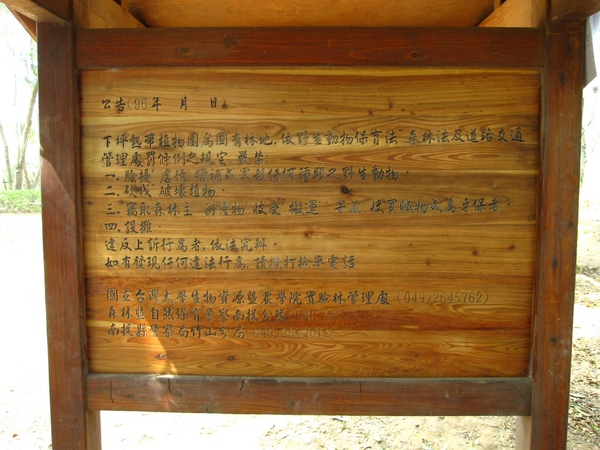 公告(96年 月 日)
下坪熱帶植物園為國有林地,依野生動物保育法 森林法及道路交通
管理處罰條例之規定,嚴禁:
一.騷擾 虐待 獵捕或宰殺任何種類之野生動物.
二.砍伐 破壞植物.
三.竊取森林主 副產物 收受 搬運 寄藏 收買贓物或為牙保者.
四.設攤.
違反上訴行為者,依法究辦.
如有發現任何違法行為,請撥打檢舉電話
國立台灣大學生物資源暨農學院實驗林管理處 (049)2645762)
森林暨自然保育警察南投分隊
南投縣警察局竹山分局